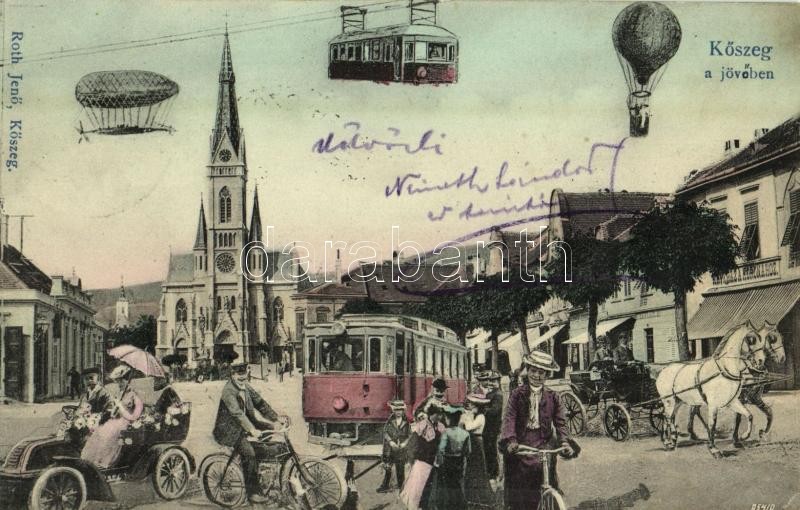 Kőszeg
a jövőben
Roth Jenő, Kőszeg.
Üdvözli
Németh Sándor
darabanth.com
05410